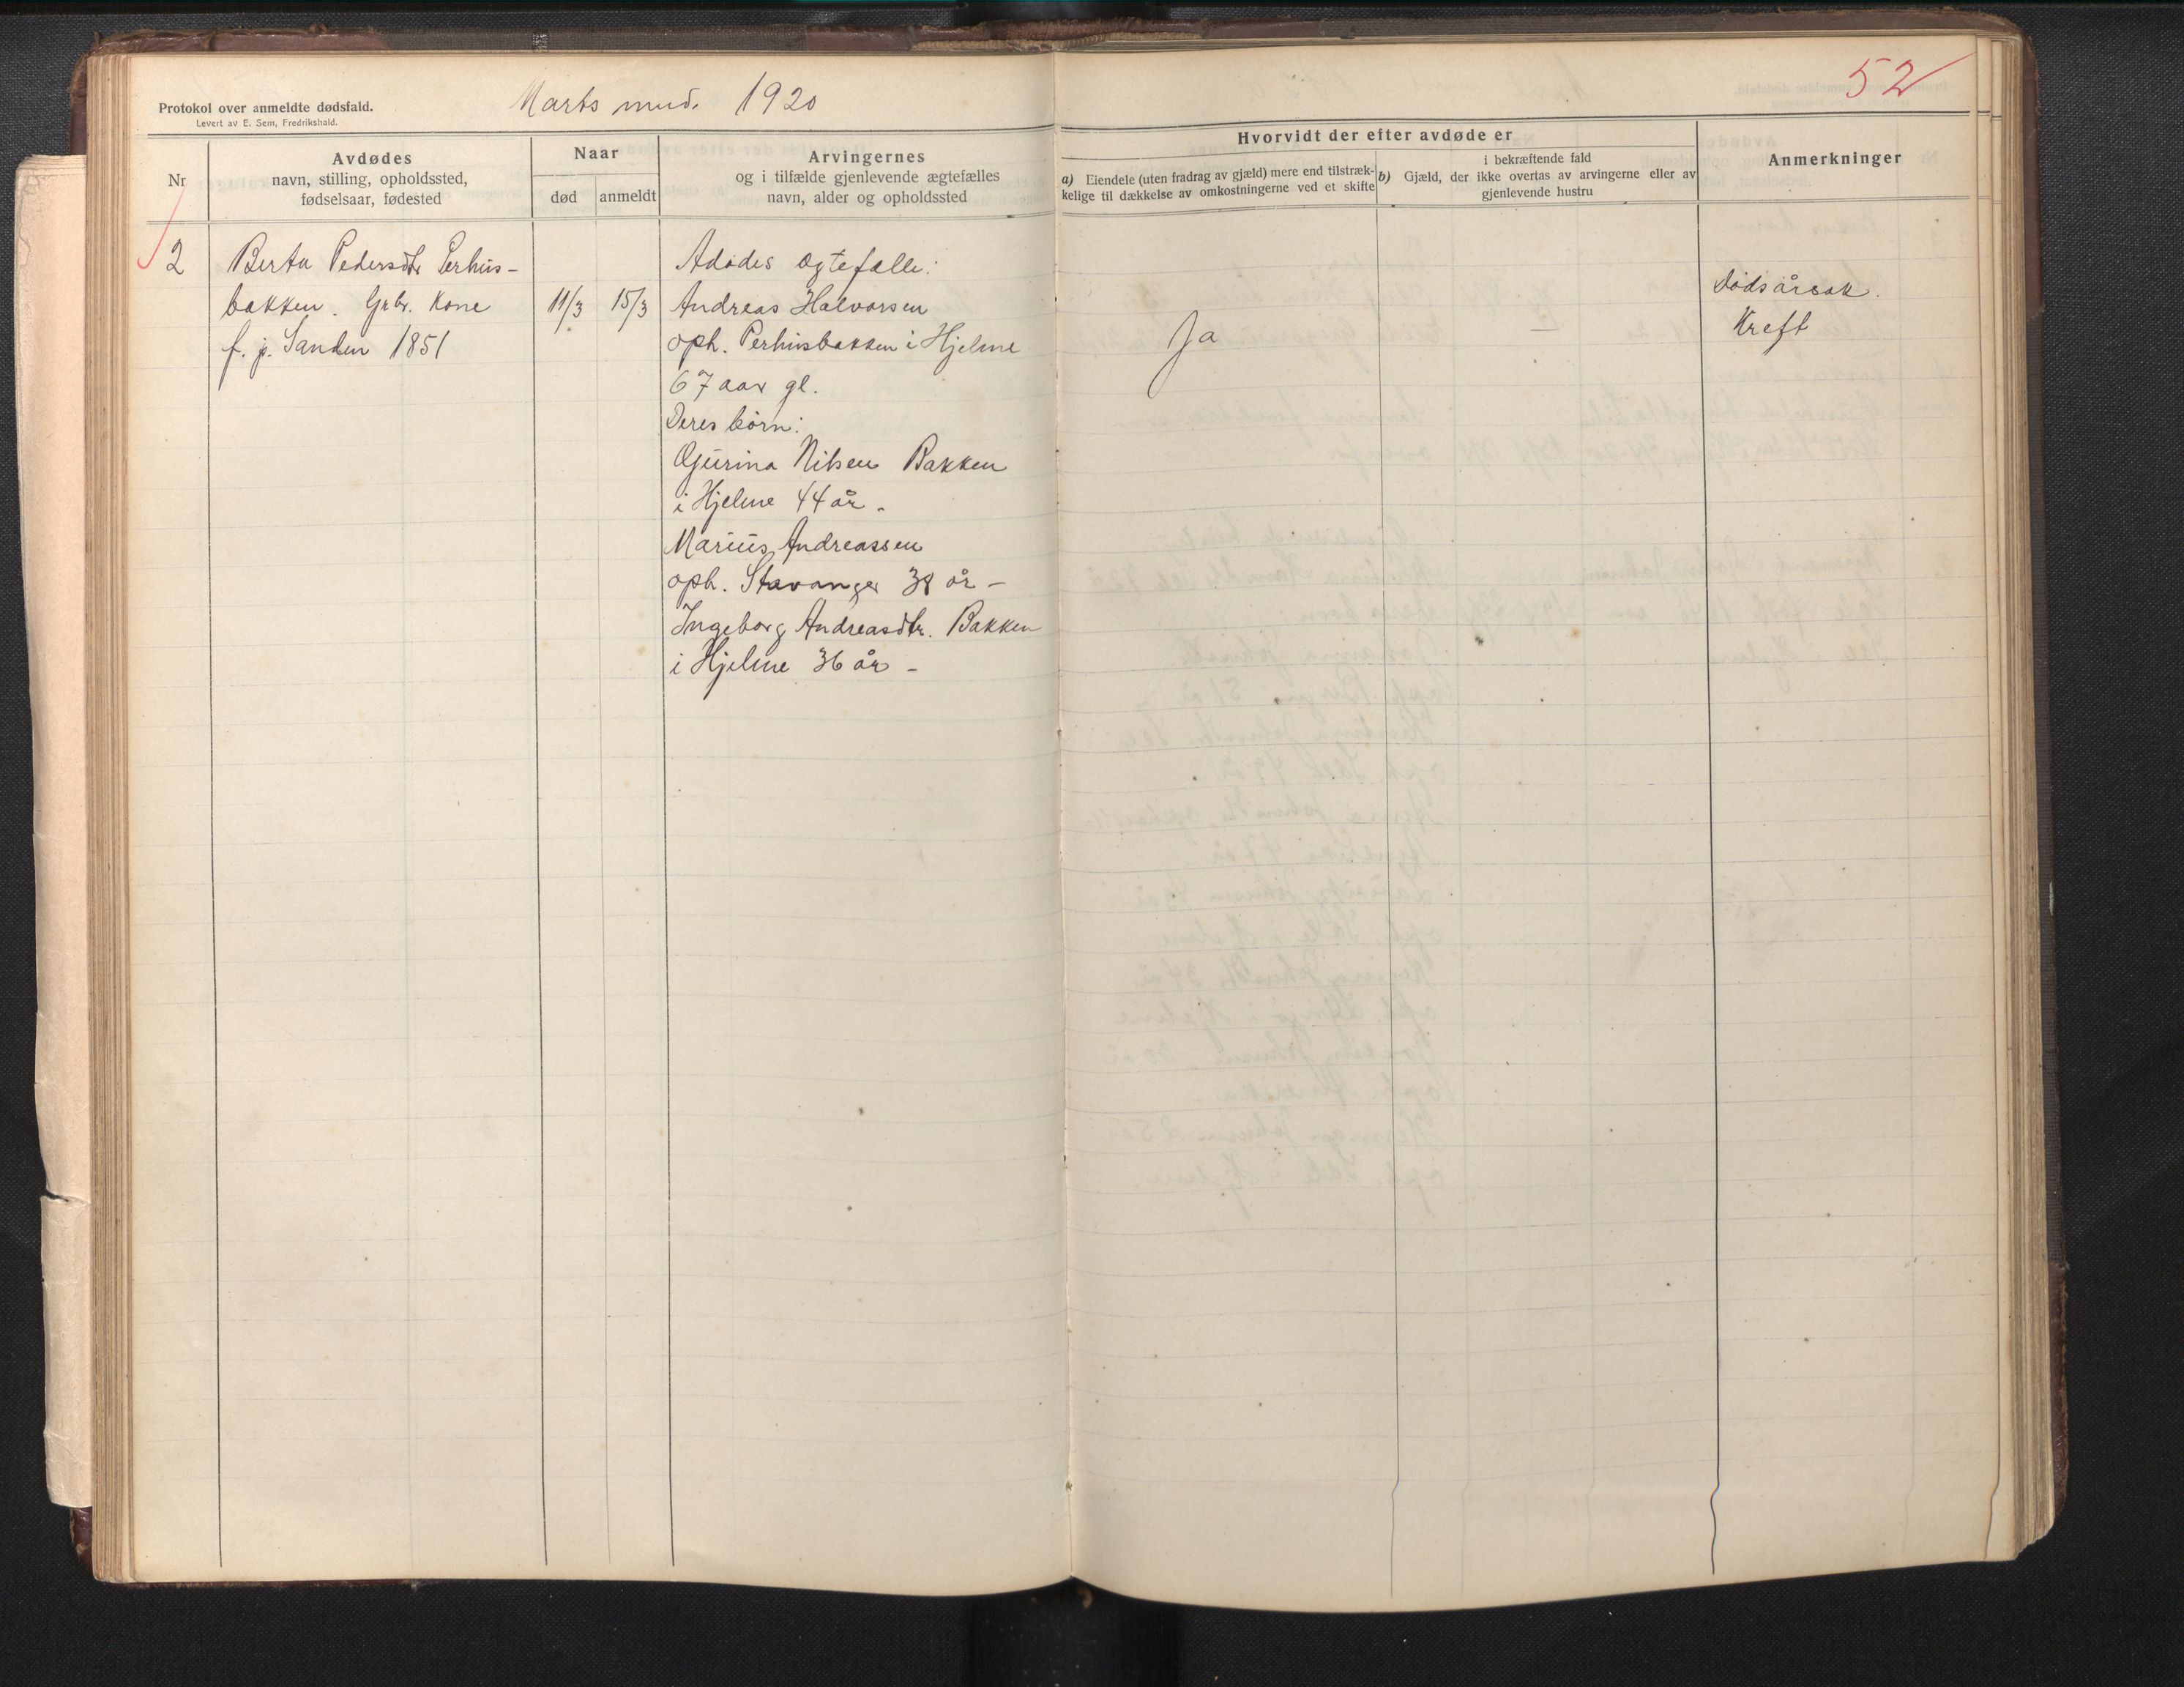 Protokol over anmeldte dødsfald.
Levert av E. Sem, Fredrikshald.
Marts mnd. 1920
52
Nr
Avdødes
navn, stilling, opholdssted,
fødselsaar, fødested
Naar
død
anmeldt
Arvingernes
og i tilfælde gjenlevende ægtefælles
navn, alder og opholdssted
Hvorvidt der efter avdøde er
a) Eiendele (uten fradrag av gjæld) mere end tilstræk-
kelige til dækkelse av omkostningerne ved et skifte
b) Gjæld, der ikke overtas av arvingerne eller av
i bekræftende fald
gjenlevende hustru
Anmerkninger
2
Berta Pedersdtr Perhus-
bakken. Grbr. Kone
f. p. Sanden 1851
11/3
15/3
Adødes ægtefælle:
Andreas Halvorsen
oph. Perhusbakken i Hjelme
67 aar gl.
Deres børn:
Gjurina Nilsen Bakken
i Hjelme 44 år -
Marius Andreassen
oph. Stavanger 38 år -
Ingeborg Andreasdtr. Bakken
i Hjelme 36 år -
Ja
—
Dødsårsak.
Kreft